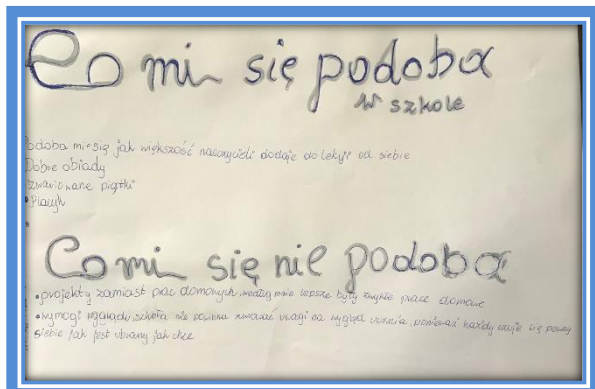 Co mi się podoba
w szkole
odoba mi się jak większość nauczycieli dodaje do lekcji od siebie
Dobre obiady
zwariowane piątki
•
Co mi się nie podoba
•projekty zamiast prac domowych według mnie lepsze były zwykłe prace domowe
•wymogi wyglądu szkoła nie powinna zwracać uwagi na wygląd ucznia, ponieważ każdy czuje się pewny
siebie jak jest ubrany jak chce